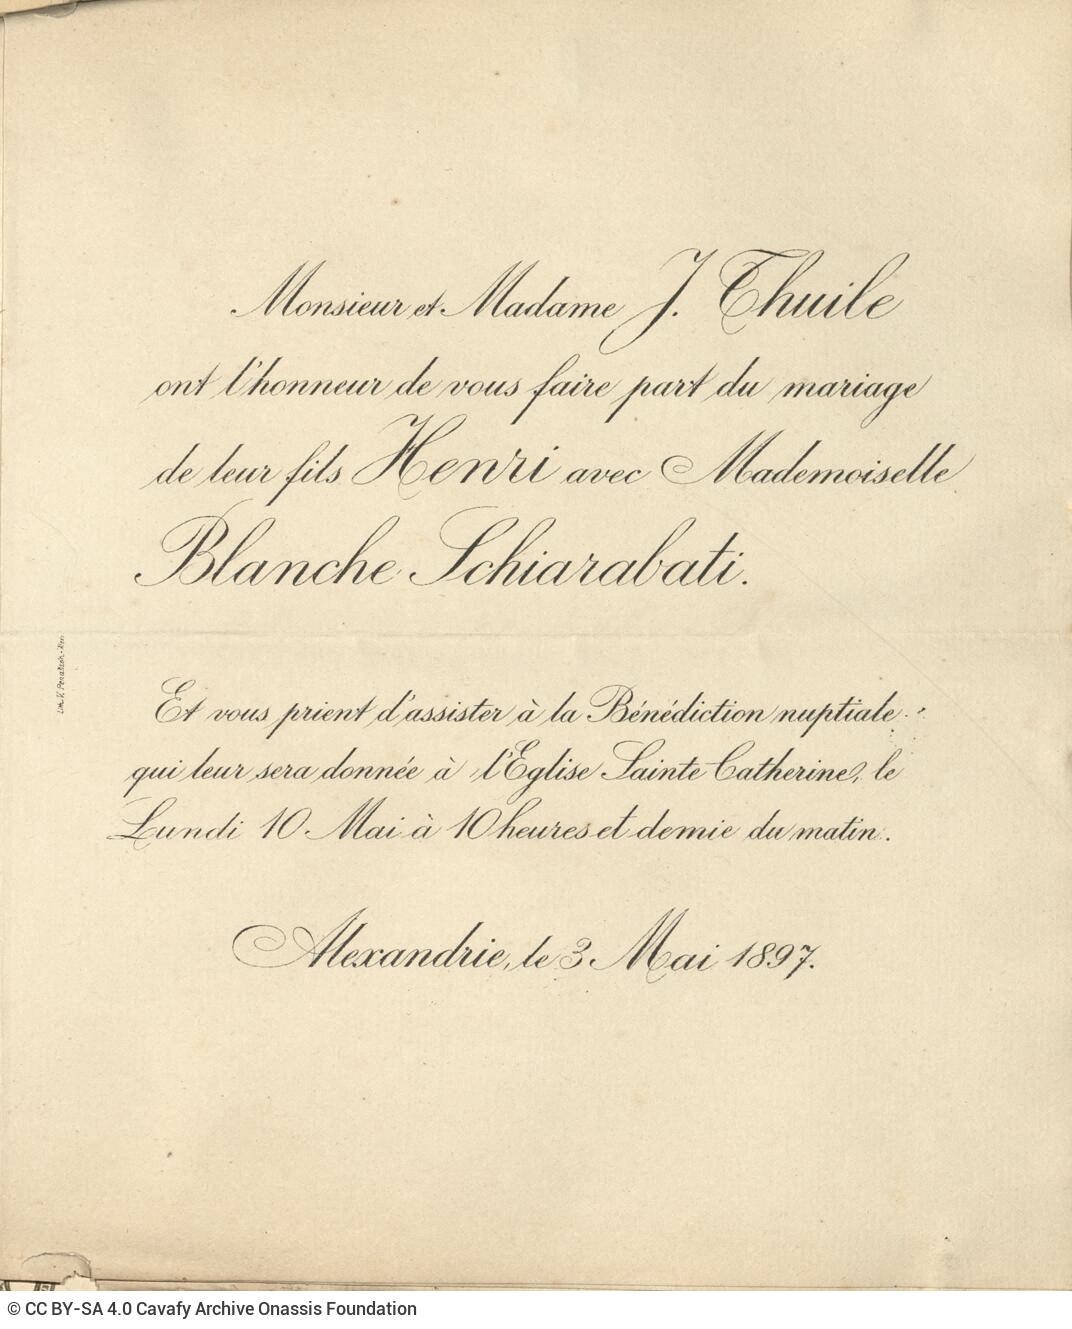 Monsieur et Madame J. Thuile
ont l'honneur de vous faire part du mariage
de leur fils Henri avec Mademoiselle
Blanche Schiarabati.
Et vous prient d'assister à la Bénédiction nuptiale
qui leur sera donnée à l'Eglise Sainte Catherine, le
Lundi 10 Mai à 10 heures et demie du matin.
Alexandrie, le 3 Mai 1897.
Lith. V. Penasson
© CC BY-SA 4.0 Cavafy Archive Onassis Foundation